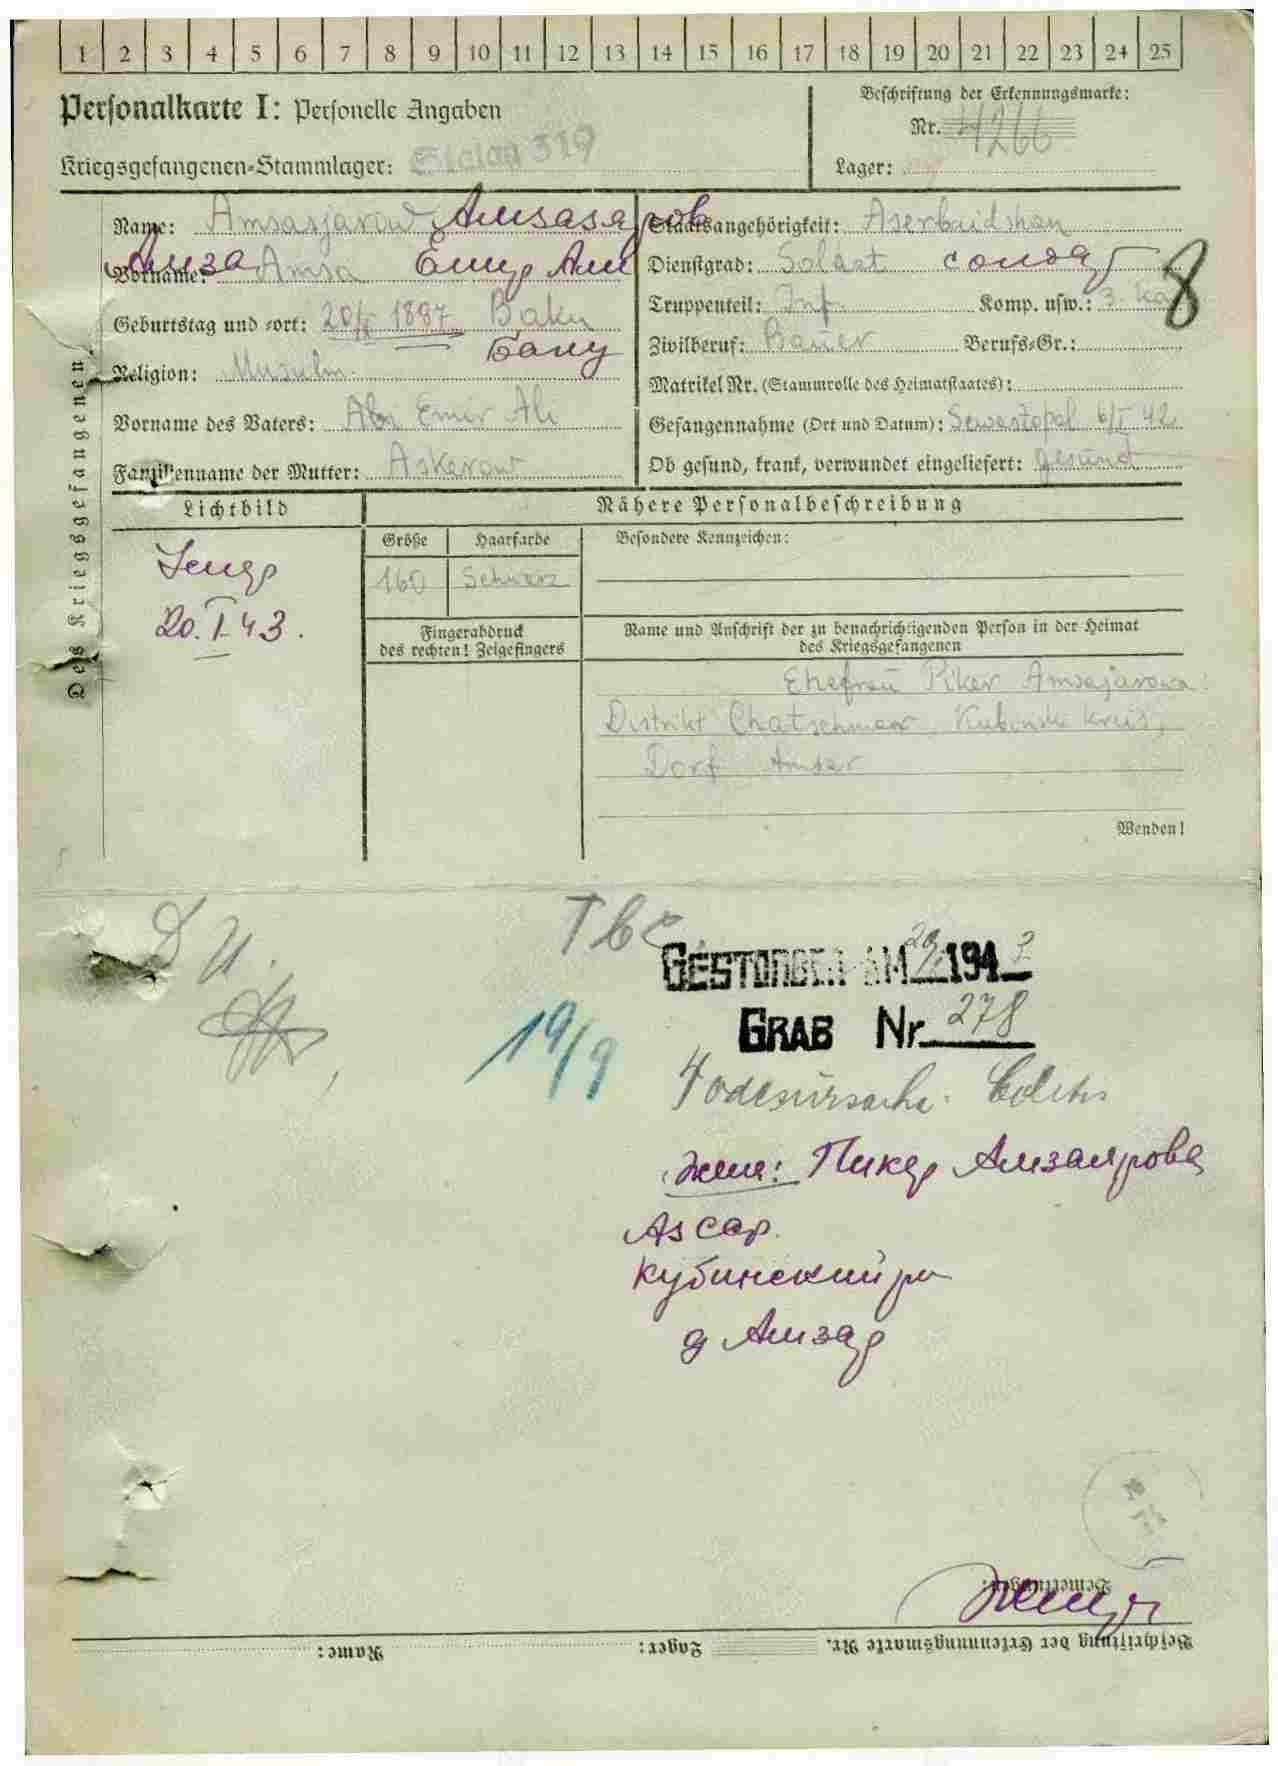 1 2 3 4 5 6 7 8 9 10 11 12 13 14 15 16 17 18 19 20 21 22 23 24 25
Personalkarte I: Personelle Angaben
Kriegsgefangenen-Stammlager: Stalag 319
Beschriftung der Erkennungsmarke:
Nr. 4266
Lager:
Des Kriegsgefangenen
Name: Amsasjarow Амзаяров
Vorname: Амза Amsa Емир Али
Geburtstag und -ort: 1887 Baku
Баку
Religion: Musulm.
Vorname des Vaters: Abi Emir Ali
Familienname der Mutter: Askerow
Staatsangehörigkeit: Aserbaidshan
Dienstgrad: Soldat солдат
8
Truppenteil: Inf. Komp. usw.: 3.
Zivilberuf: Bauer Berufs-Gr.:
Matrikel Nr. (Stammrolle des Heimatstaates):
Gefangennahme (Ort und Datum): Sewastopol 42
Ob gesund, krank, verwundet eingeliefert: gesund
Lichtbild
Умер
20.I.43.
Nähere Personalbeschreibung
Größe Haarfarbe
160 Schwarz
Besondere Kennzeichen:
Fingerabdruck
des rechten! Zeigefingers
Name und Anschrift der zu benachrichtigenden Person in der Heimat
des Kriegsgefangenen
Ehefrau Piker Amsajarowa
Distrikt Chatschmew Kubinski Kreis,
Dorf Amser
Wenden!
D U.
Tbc
GESTORBEN AM 194
GRAB Nr. 278
19/9
Todesursache:
жена: Пикер Амзаярова
Аз ССР.
Кубинский рн
д Амзар
Bemerkungen:
Beschriftung der Erkennungsmarke Nr. Lager: Name: